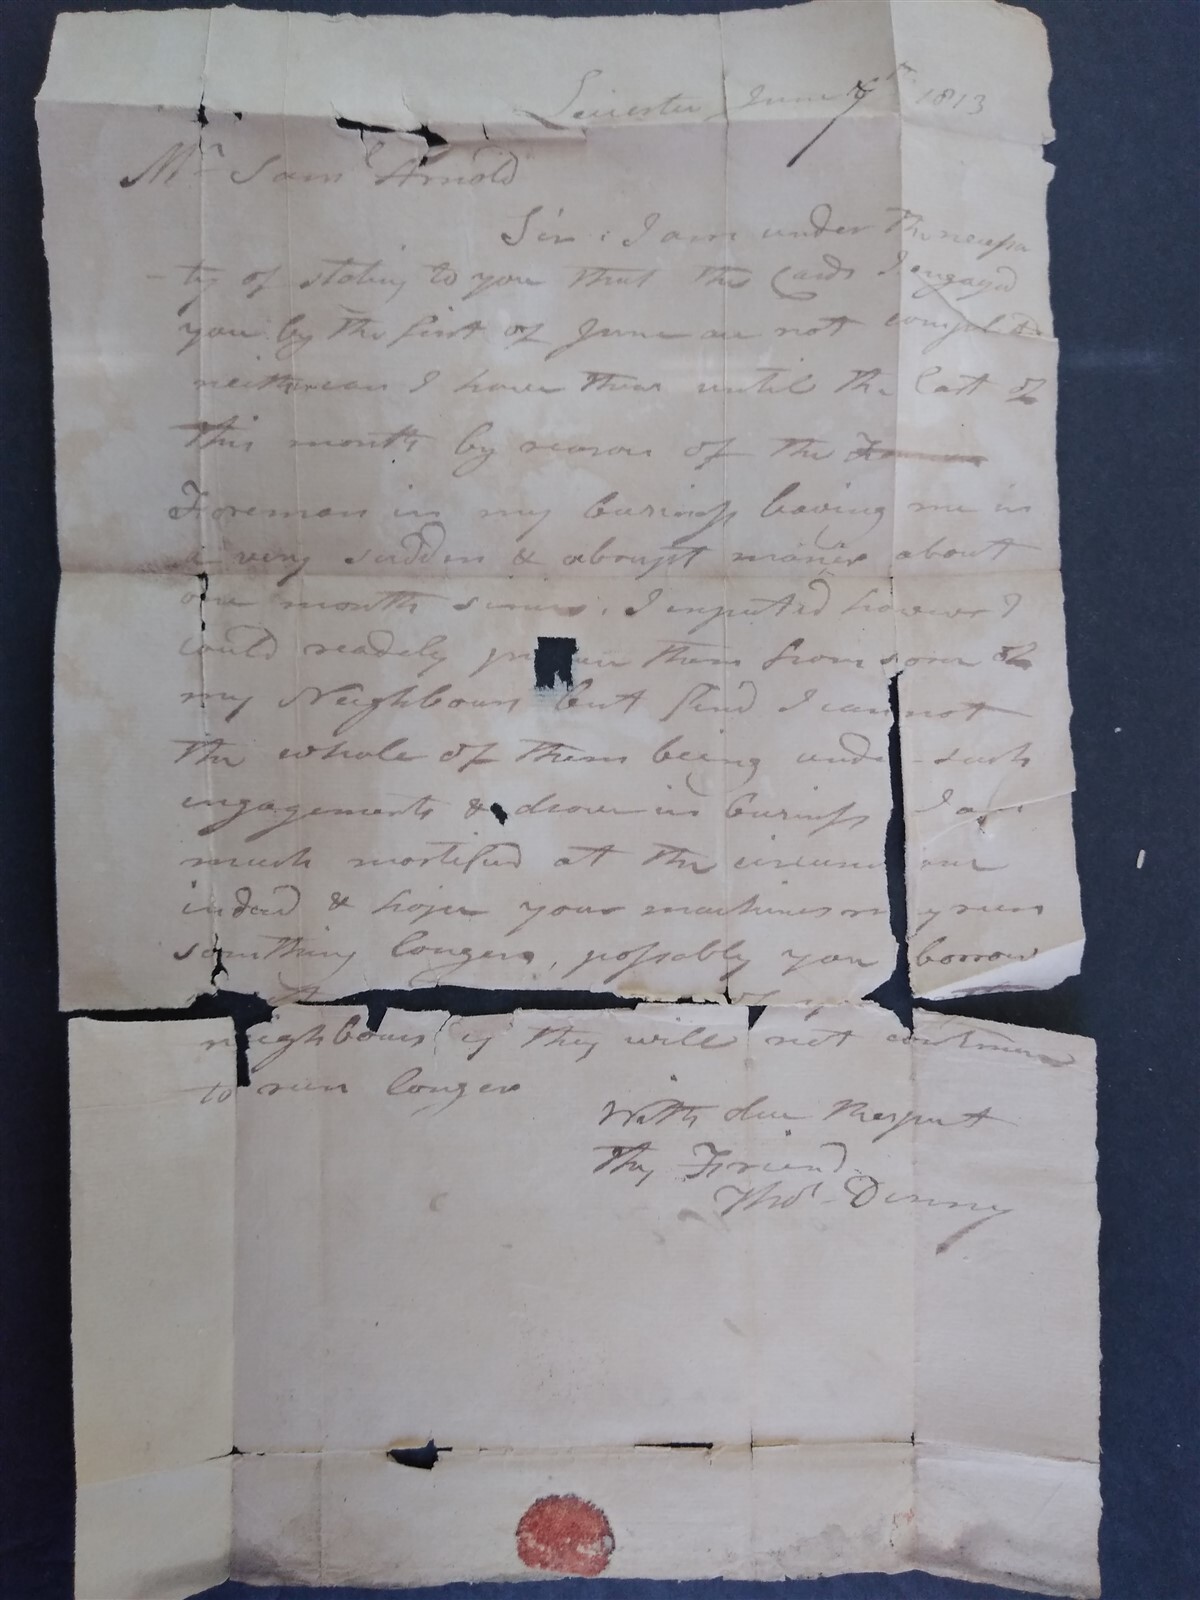 Leicester June 7th 1813
Mr Saml Arnold
Sir : I am under the necessi
-ty of stating to you that the Cards I engaged
you by the first of June are not completed
neither can I have them until the last of
This month by reason of the
Foreman in my business leaving me in
a very sudden & abrupt manner about
one month since, I expected however I
could readely pr un them from some of
my Neighbours but find I cannot
the whole of them being unde such
engagements & drove in business I am
much mortified at the circum
indeed & hope your machines m y run
something longer, possably you borrow
of your
neighbours if they will not continue
to run longer
With due Respect
Thy Friend
Thos Denny